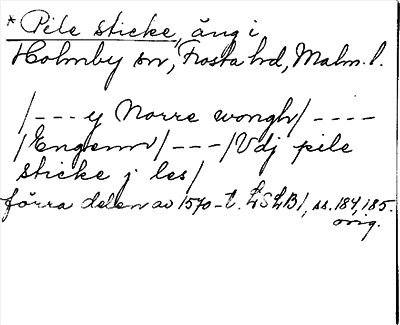 *Pile sticke, äng i
Holmby sn, Frosta hd, Malm. l.
/--- y Norre wongh/ ----
/Engenn/ --- /Vdj pile
sticke j les/
förra delen av 1570-t. LSLB1, ss. 184, 185.
orig.